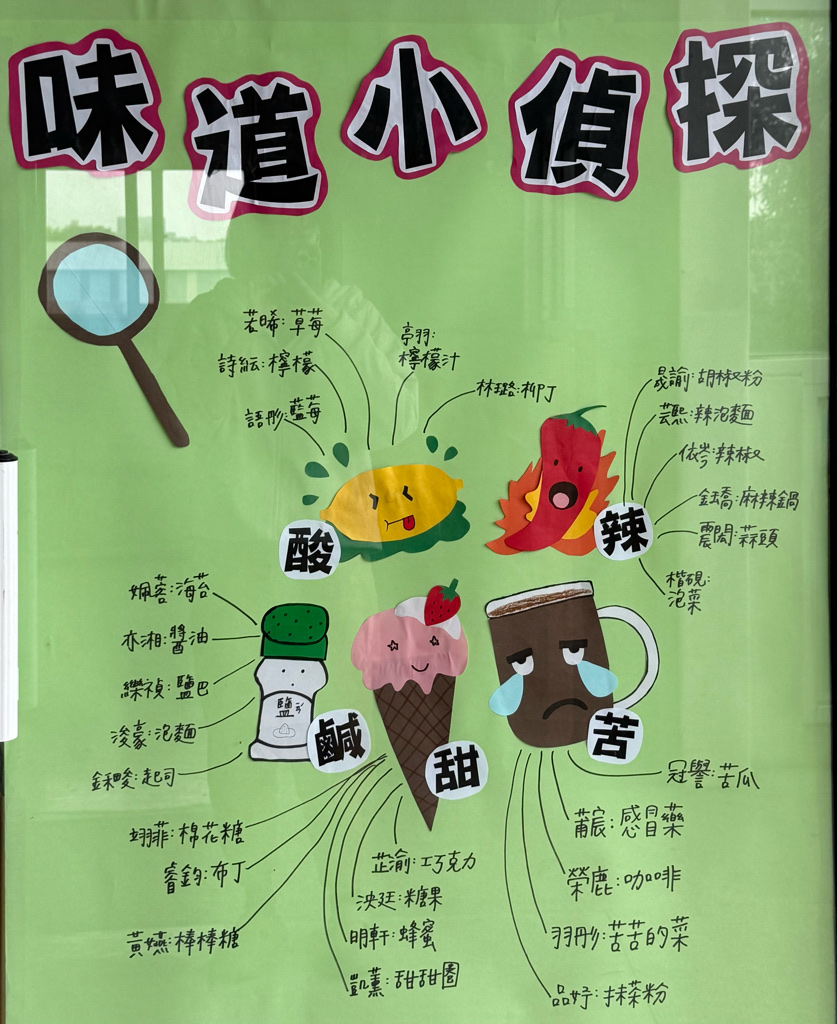 味道小偵探
若晞:草莓
詩紜:檸檬
語彤:藍莓
亭羽:
檸檬汁
林璐:柳丁
酸
晟諭:胡椒粉
芸熙:辣泡麵
依岑:辣椒
鈺喬:麻辣鍋
震閎:蒜頭
楷硯:
泡菜
辣
姵蓉:海苔
亦湘:醬油
縈禎:鹽巴
浚豪:泡麵
起司
鹽
鹹
翊菲:棉花糖
睿鈞:布丁
黃嬿:棒棒糖
芷渝:巧克力
泱廷:糖果
明軒:蜂蜜
凱薰:甜甜圈
甜
冠譽:苦瓜
莆宸:感冒藥
榮鹿:咖啡
羽彤:苦苦的菜
品妤:抹茶粉
苦